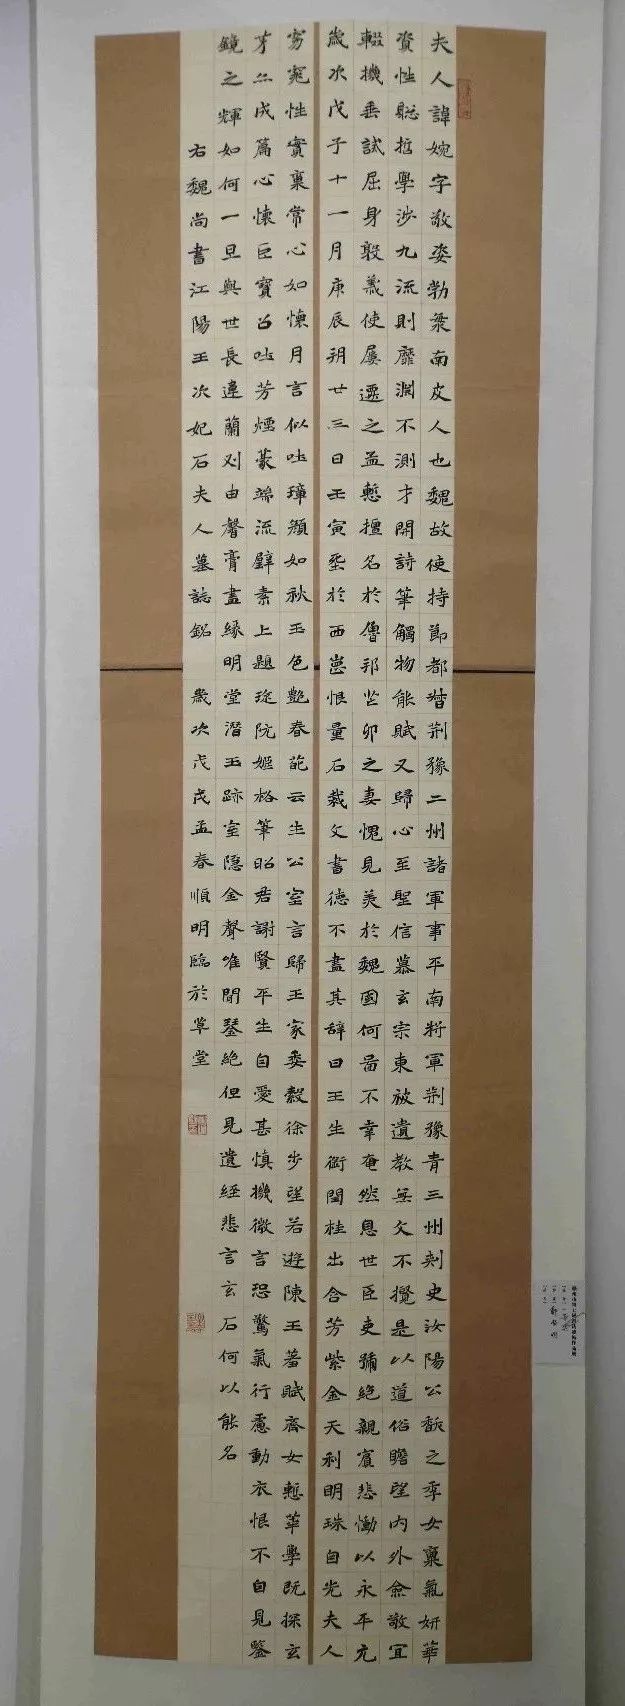 夫人諱婉字敬姿勃海南皮人也魏故使持節都督荊豫二州諸軍事平南將軍荊豫青三州刺史汝陽公馛之季女稟氣妍華
資性聡哲學涉九流則靡淵不測才關詩筆觸物能賦又歸心至聖信慕玄宗東被遺教無文不攬是以道俗瞻望内外僉敬宜
輟機垂試屈身毀義使屢遷之孟慙擅名於魯邦芒卯之妻愧見羙於魏國何啚不幸奄然息世臣吏殞絶親賓悲慟以永平元
歲次戊子十一月庚辰朔廿三日壬寅塟於西崗恨量石裁文書德不盡其辞曰玉生衖閨桂出含芳紫金天利明珠自光夫人
窈窕性實稟常心如懷月言似吐璋顏如秋玉色艷春葩云生公室言歸王家委縠徐步望若遊陳王羞賦齊女慙華學既探玄
才亦成篇心懷巨寶口吐芳煙豪端流璧素上題琁阮姬格筆昭君謝賢平生自愛甚慎機微言恐驚氣行慮動衣恨不自見鑒
鏡之輝如何一旦與世長違蘭刈由馨膏盡緣明堂潛玉跡室隱金聲唯聞琴絶但見遺經悲言玄石何以能名
右魏尚書江陽王次妃石夫人墓誌銘 歲次戊戌孟春順明臨於草堂